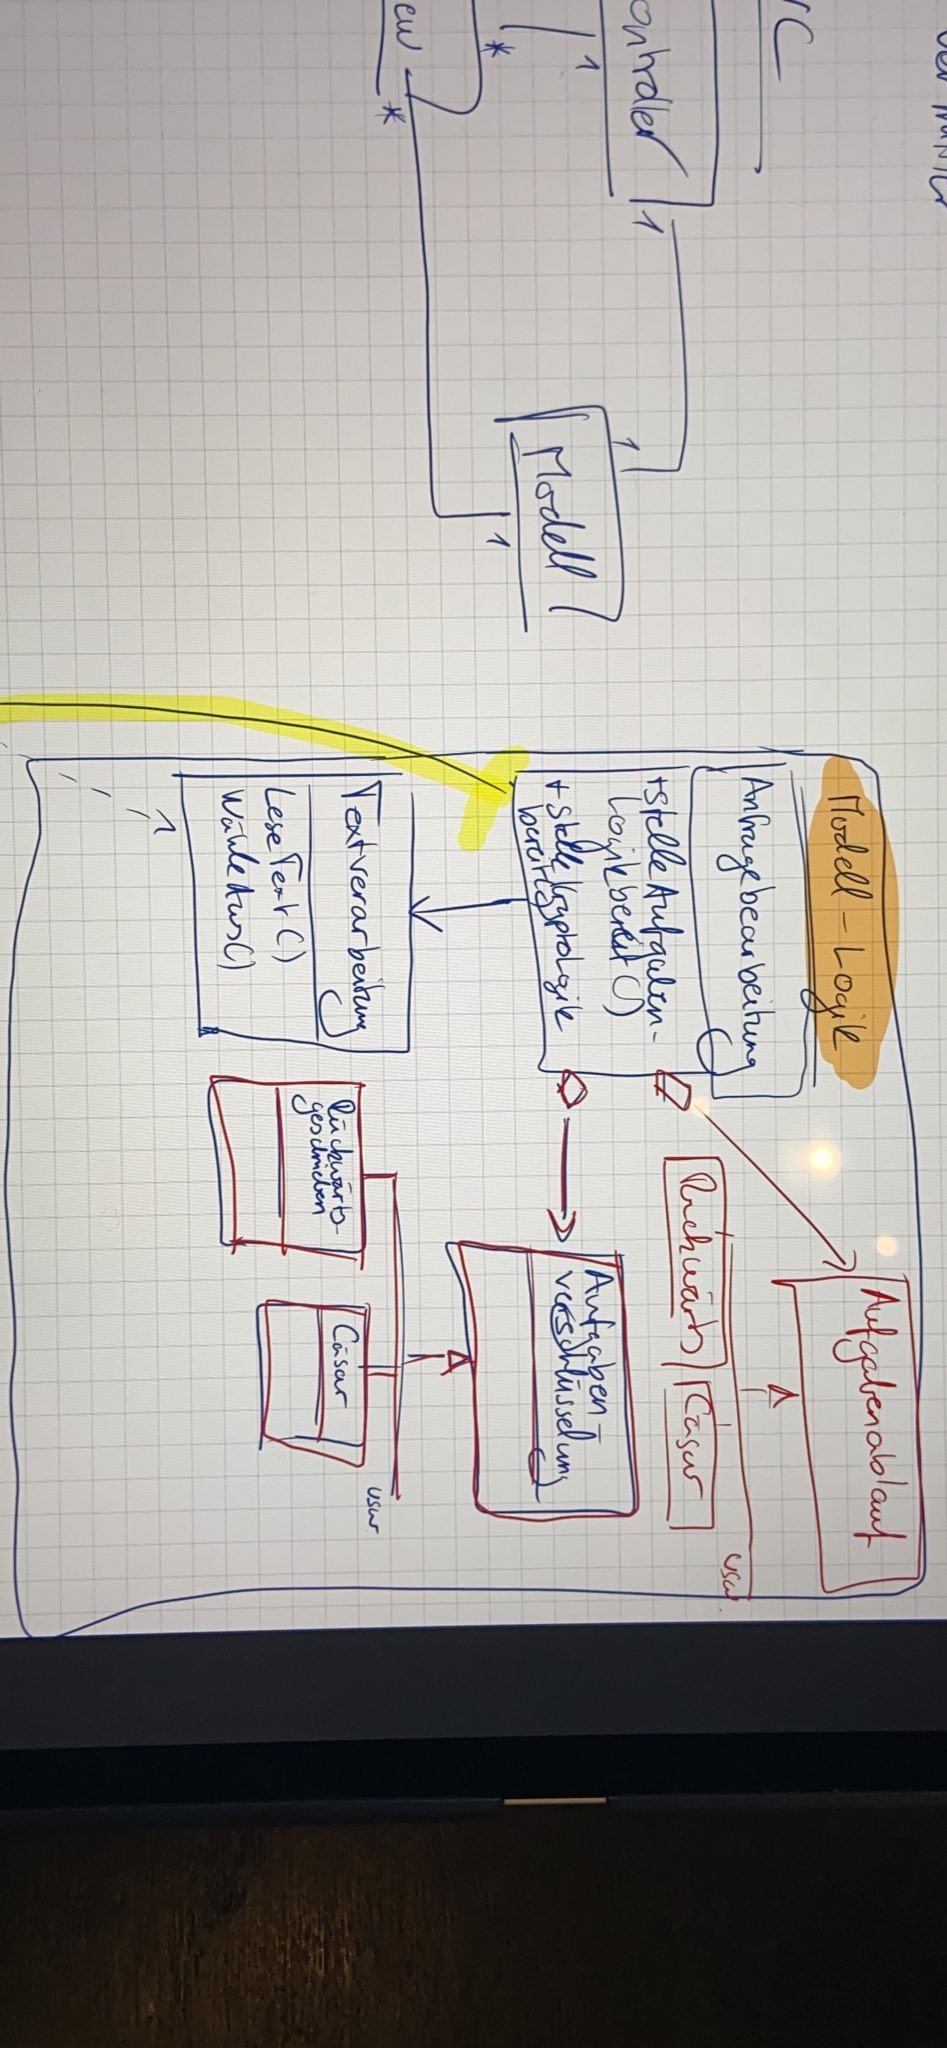 VC
ontroller
1
1
*
ew
*
1
Modell
1
Modell-Logik
Anfragebearbeitung
+ Stelle Aufgaben-
Logik bereit()
+ Stelle Kryptologik
bereit()
Textverarbeitung
Lese Text()
Wähle Aus()
Aufgabenablauf
Rückwärts
Cäsar
usw
Aufgaben-
verschlüsselung
Rückwärts-
geschrieben
Cäsar
usw